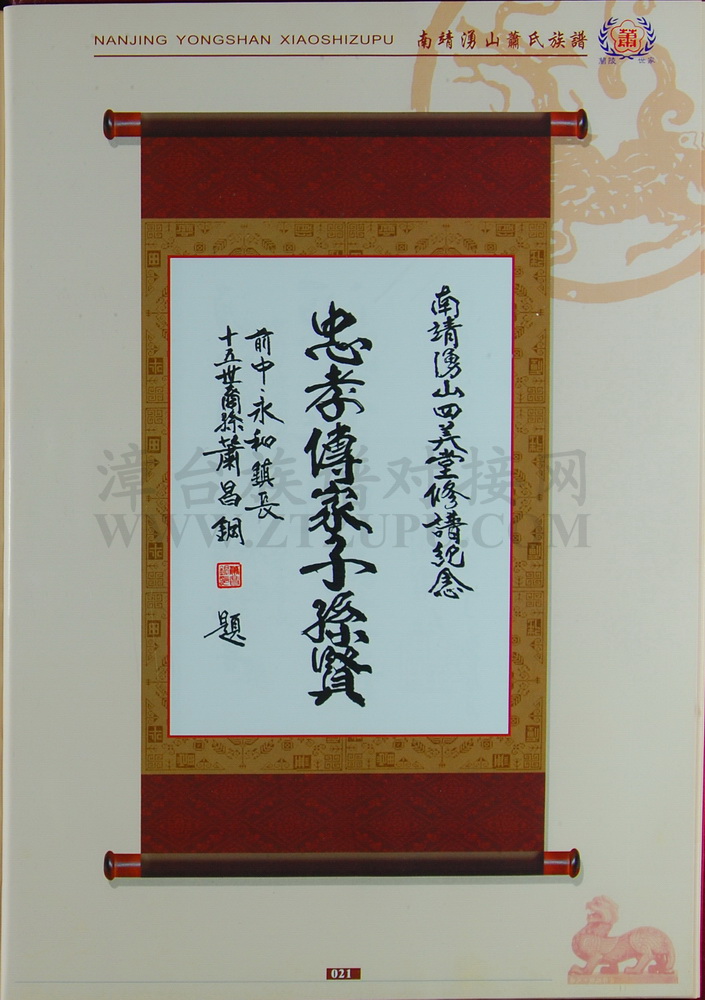 NANJING YONGSHAN XIAOSHIZUPU 南靖湧山蕭氏族譜
蕭
蘭陵 世家
南靖湧山四美堂修譜紀念
忠孝傳家子孫賢
前中永和鎮長
十五世裔孫蕭昌鋼
題
漳台族谱对接网
WWW.ZTZUPU.COM
021